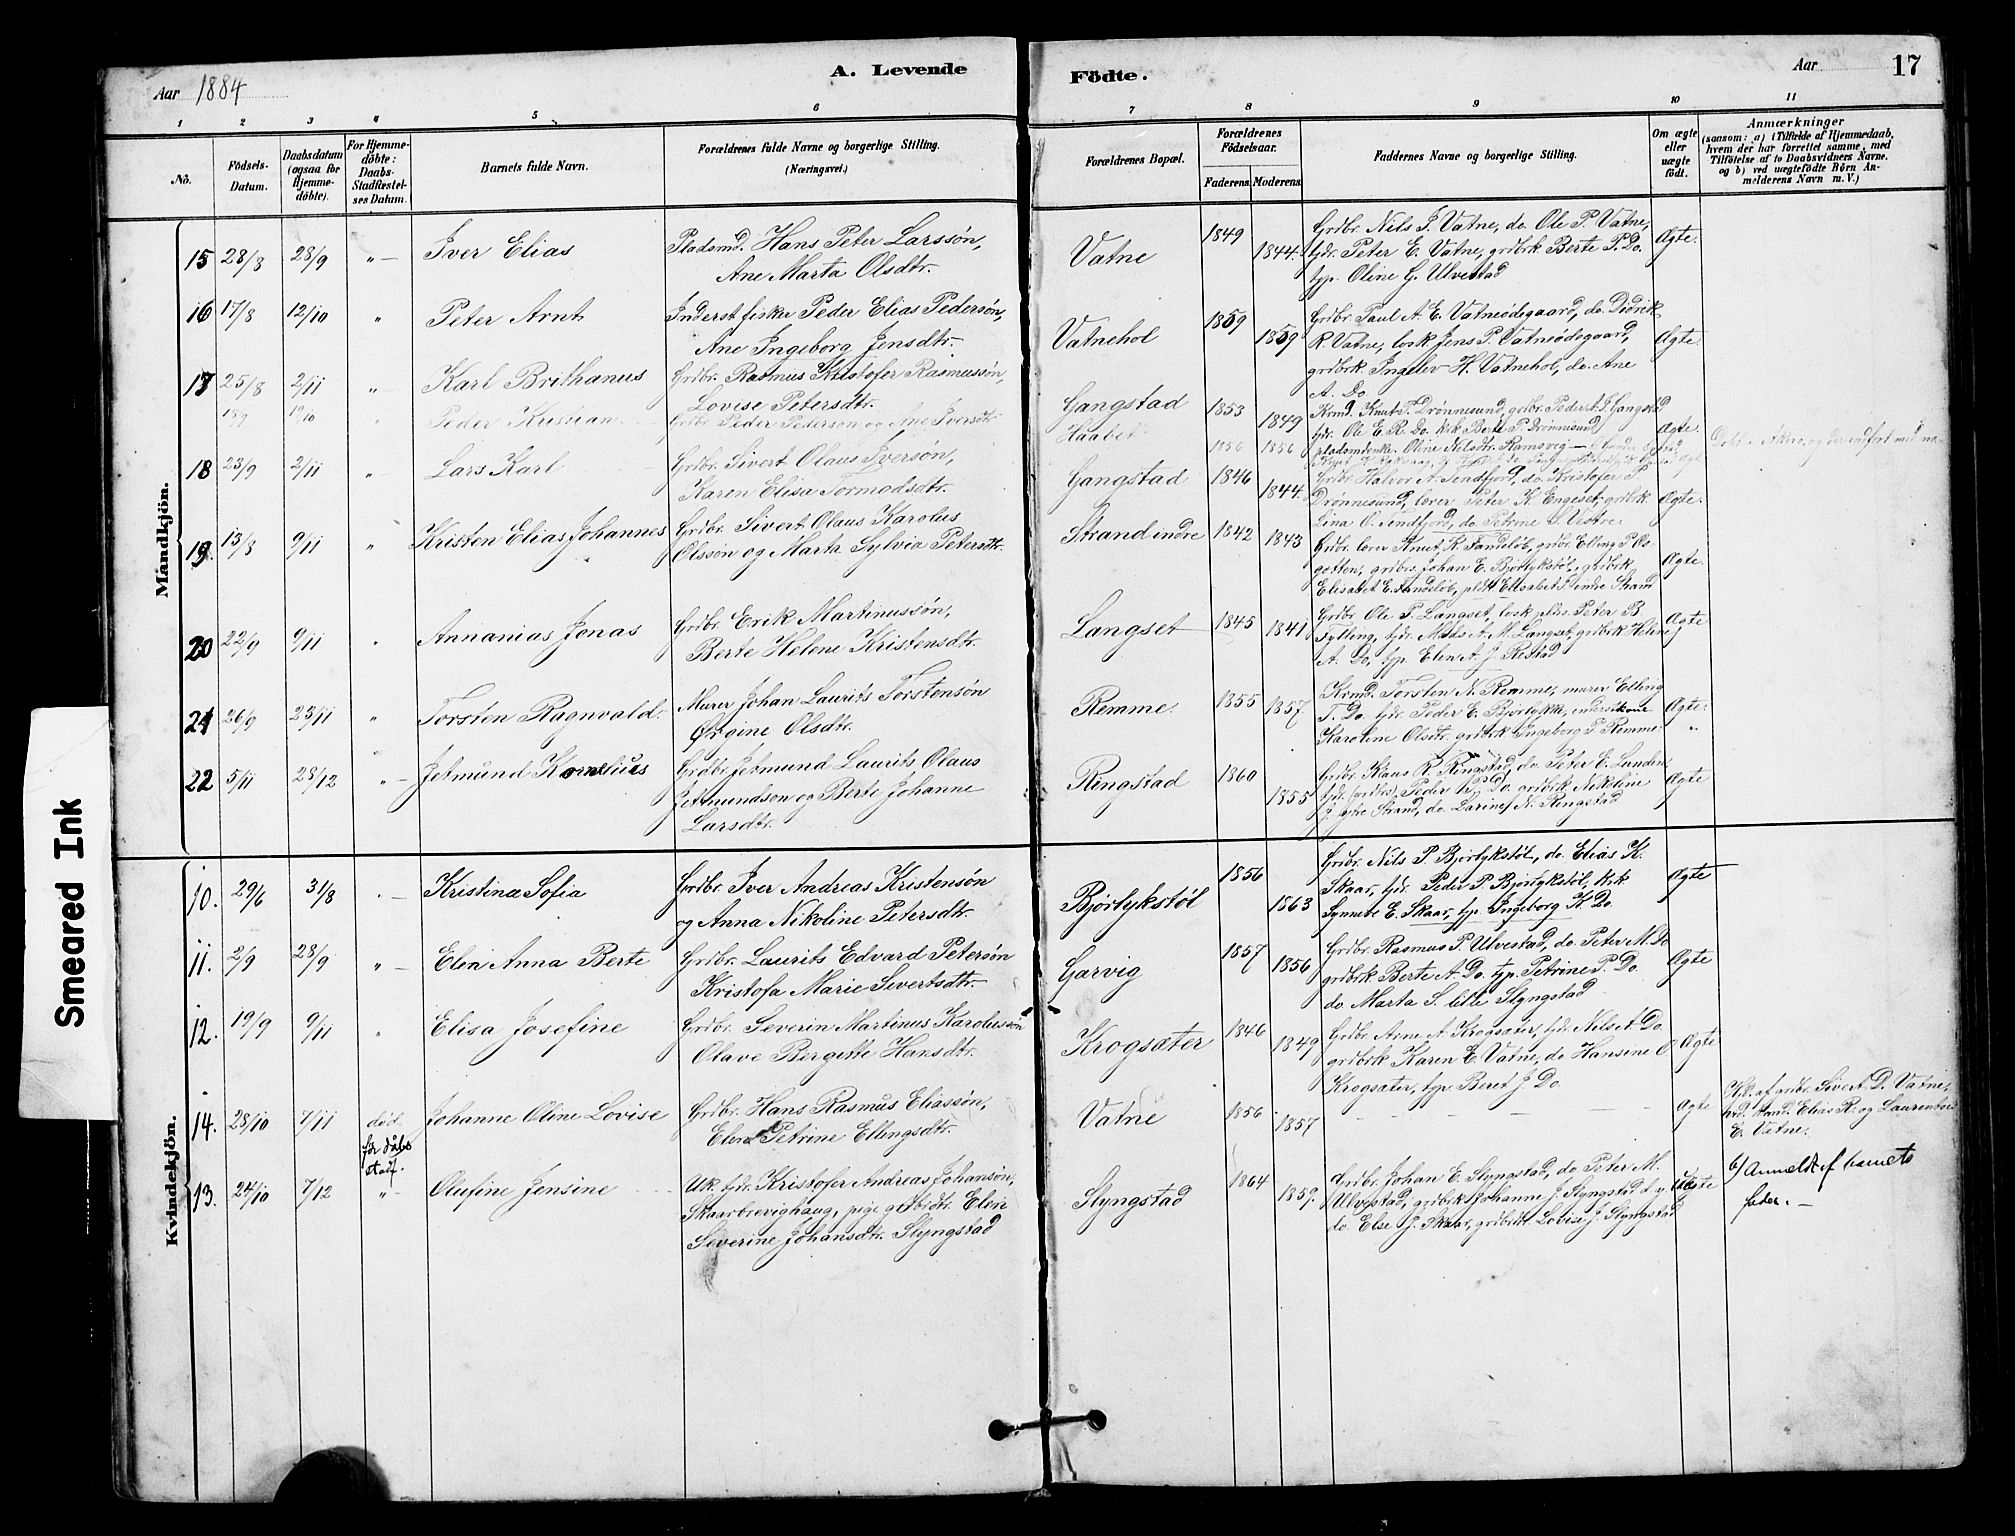 Aar 1884
A. Levende
Födte.
Aar
17
1 2 3 4 5 6 7 8 9 10 11
No.
Födsels-Datum.
Daabsdatum (ogsaa for Hjemmedöbte).
For Hjemmedöbte: Daabs-Stadfæstelses Datum.
Barnets fulde Navn.
Forældrenes fulde Navne og borgerlige Stilling.
(Næringsvei.)
Forældrenes Bopæl.
Forældrenes Födselsaar.
Faderens. Moderens.
Faddernes Navne og borgerlige Stilling.
Om ægte eller uægte födt.
Anmærkninger
(saasom: a) i Tilfælde af Hjemmedaab,
hvem der har forrettet samme, med
Tilföielse af to Daabsvidners Navne.
og b) ved uægtefödte Börn An-
melderens Navn m.V.)
Mandkjön.
15 28/8 28/9 „ — Iver Elias Pladsmd. Hans Peter Larssön, Vatne 1849 Grdbr. Nils J. Vatne, do. Ole P. Vatne, Ægte.
Ane Marta Olsdtr. 1844. tjdr. Peter E. Vatne, grdbrk Berte P. Do.
typ. Oline G. Ulvestad
16 17/8 12/10 „ Peter Arnt Inderst fisker Peder Elias Pedersön, Vatnehol 1859 Grdbr. Paul A. E. Vatneödegaard, do. Didrik
Ane Ingeborg Jensdtr. 1859 R. Vatne, losk Jens P. Vatneödegaard, Ægte.
grdbrk Ingelev H. Vatnehol, do. Ane
A. Do.
17 25/8 2/11 „ Karl Brithanus Grdbr. Rasmus Kristofer Rasmussön, Gangstad 1853 1849
Lovise Petersdtr. Krmd. Knut T. Drönnesund, grdbr. Peder A. J. Gangstad
tjdr. Ole E. R. Do. krk Berte P. Drönnesund, Ægte.
19/10 Peder Kristian Grdbr. Peder Pederson og Ane Iversdtr. Haabet 1856 1856
pladsmdenke. Oline Nilsdtr. Ramsvig
18 23/9 2/11 „ Lars Karl Grdbr. Sivert Olaus Iversön, Gangstad 1846 Grdbr. Halvor A. Tenfjord, do. Kristofer P.
Karen Elisa Tormodsdtr. 1844. Drönnesund, lærer Peter K. Engeset, grdbrk Ægte.
Lina O. Tenfjord, do. Petrine S. Vestre
19. 13/8 9/11 „ Kristen Elias Johannes Grdbr. Sivert Olaus Karolus Strand indre 1842 1843
Olssön og Marta Sylvia Petersdtr. Grdbr. lærer Knut R. Tandelöb, grdbr. Elling P. Os-
gotten, grdbrs. Johan E. Björlykstöl, grdbrk Ægte.
Elisabet E. Tandelöb, Elisabet T. indre Strand
20 22/9 9/11 „ Annanias Jonas Grdbr. Erik Martinussön, Langset 1845 1841 Grdbr. Ole T. Langset, losk plds. Peter B Ægte
Berte Helene Kristensdtr. Fylling, tjdr. Mads A. M. Langset, grdbrk Helene
A. Do, typ. Elen A. J. Restad
21 26/9 23/11 „ Torsten Ragnvald. Murer Johan Laurits Torstensön Remme. 1855 1857. Krmd. Torsten N. Remme, murer Elling
Örgine Olsdtr. T. Do. tjdr. Peder E. Björlykke, Ægte.
Karoline Olsdtr. grdbrk Ingeborg P. Remme. „
22 5/11 28/12 „ — Jetmund Kornelius Grdbr. Jetmund Laurits Olaus Ringstad 1860 Grdbr. Klaus R. Ringstad, do. Peter E. Lunden,
Jetmundsön og Berte Johanne 1855 tjdr. Peder Do. grdbrk Nikoline Ægte
Larsdtr. J. ytre Strand, do. Larine N. Ringstad
Kvindekjön.
10. 29/6 31/8 „ — Kristina Sofia Grdbr. Iver Andreas Kristensön Björlykstöl 1856 Grdbr. Nils P. Björlykstöl, do. Elias K. Ægte
og Anna Nikoline Petersdtr. 1863 Skaar, tjdr. Peder P. Björlykstöl, krk
Synneve E. Skaar, typ. Ingeborg K. Do.
11. 2/9 28/9 „ — Elen Anna Berte Grdbr. Laurits Edvard Petersön Garvig 1857 1856 Grdbr. Rasmus P. Ulvestad, do. Peter M. Do Ægte
Kristofa Marie Sivertsdtr. grdbrk Berte A. Do. typ. Petrine P. Do.
do Marta S. lille Slyngstad
12. 19/9 9/11 „ Elisa Josefine Grdbr. Severin Martinus Karolussön Krogsæter 1846 1849 Grdbr Arne A. Krogsæter, tjdr. Nils A. Do.
Olave Bergitte Hansdtr. grdbrk Karen E. Vatne, do Hansine O Ægte
Krogsæter, typ. Beret J. Do.
14. 28/10 7/11 död för dåbs staf. Johanne Oline Lovise Grdbr. Hans Rasmus Eliassön, Vatne 1856 1857 — — — — — Ægte
Elen Petrine Ellingsdtr.
af grdbr. Sivert D. Vatne, Elias R. og Laurentse
E. Vatne.
13. 24/10 7/12 „ Olufine Jensine Uk. tjdr. Kristofer Andreas Johansön, Slyngstad 1864 1859. Grdbr. Johan E. Slyngstad, do. Peter M. Uægte b) Anmeldt af barnets
Skaarbrevighaug, pige grdbrdtr. Eline Ulvestad, grdbrk Johanne J. Slyngstad d. y. fader. —
Severine Johansdtr. Slyngstad do. Else J. Skaar, grdbrdtr. Lovise J. Slyngstad
Smeared Ink